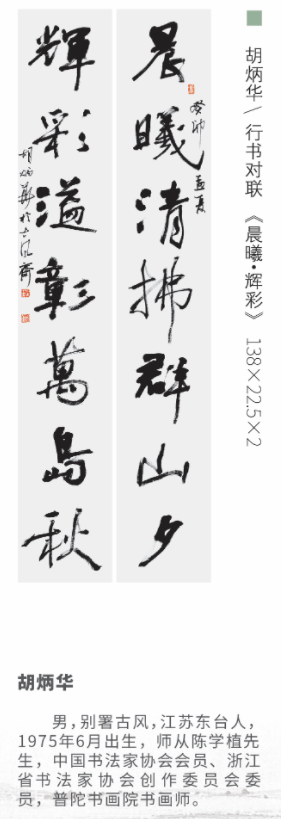 胡炳华/行书对联 《晨曦·辉彩》 138×22.5×2
晨曦清拂群山夕
癸卯孟夏
輝彩溢彰萬島秋
胡炳華於古風齋
胡炳华
男，别署古风，江苏东台人，
1975年6月出生，师从陈学植先
生，中国书法家协会会员、浙江
省书法家协会创作委员会委
员，普陀书画院书画师。